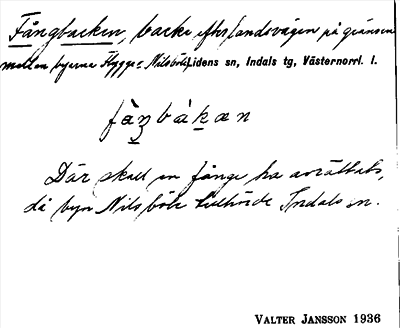 Fångbacken, backe efter landsvägen på gränsen
mellan byarna Flygge o Nilsböle Lidens sn, Indals tg, Västernorrl. l.
fàŋbàkæn
Där skall en fånge ha avrättats,
då byn Nilsböle tillhörde Indals sn.
VALTER JANSSON 1936